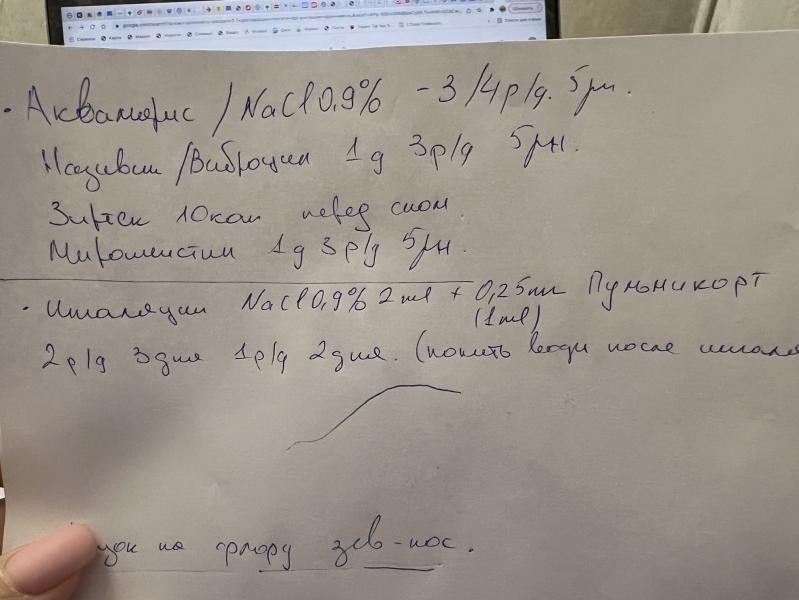 · Аквамарис / NaCl 0,9% - 3/4 р/д. 5дн.
Називин / Виброцил 1д 3р/д 5дн.
Зиртек 10кап перед сном.
Мирамистин 1д 3р/д 5дн.
· Ингаляции NaCl 0,9% 2ml + 0,25мг Пульмикорт
(1ml)
2р/д 3дня 1р/д 2дня. (попить воды после ингаля
зок на флору зев-нос.